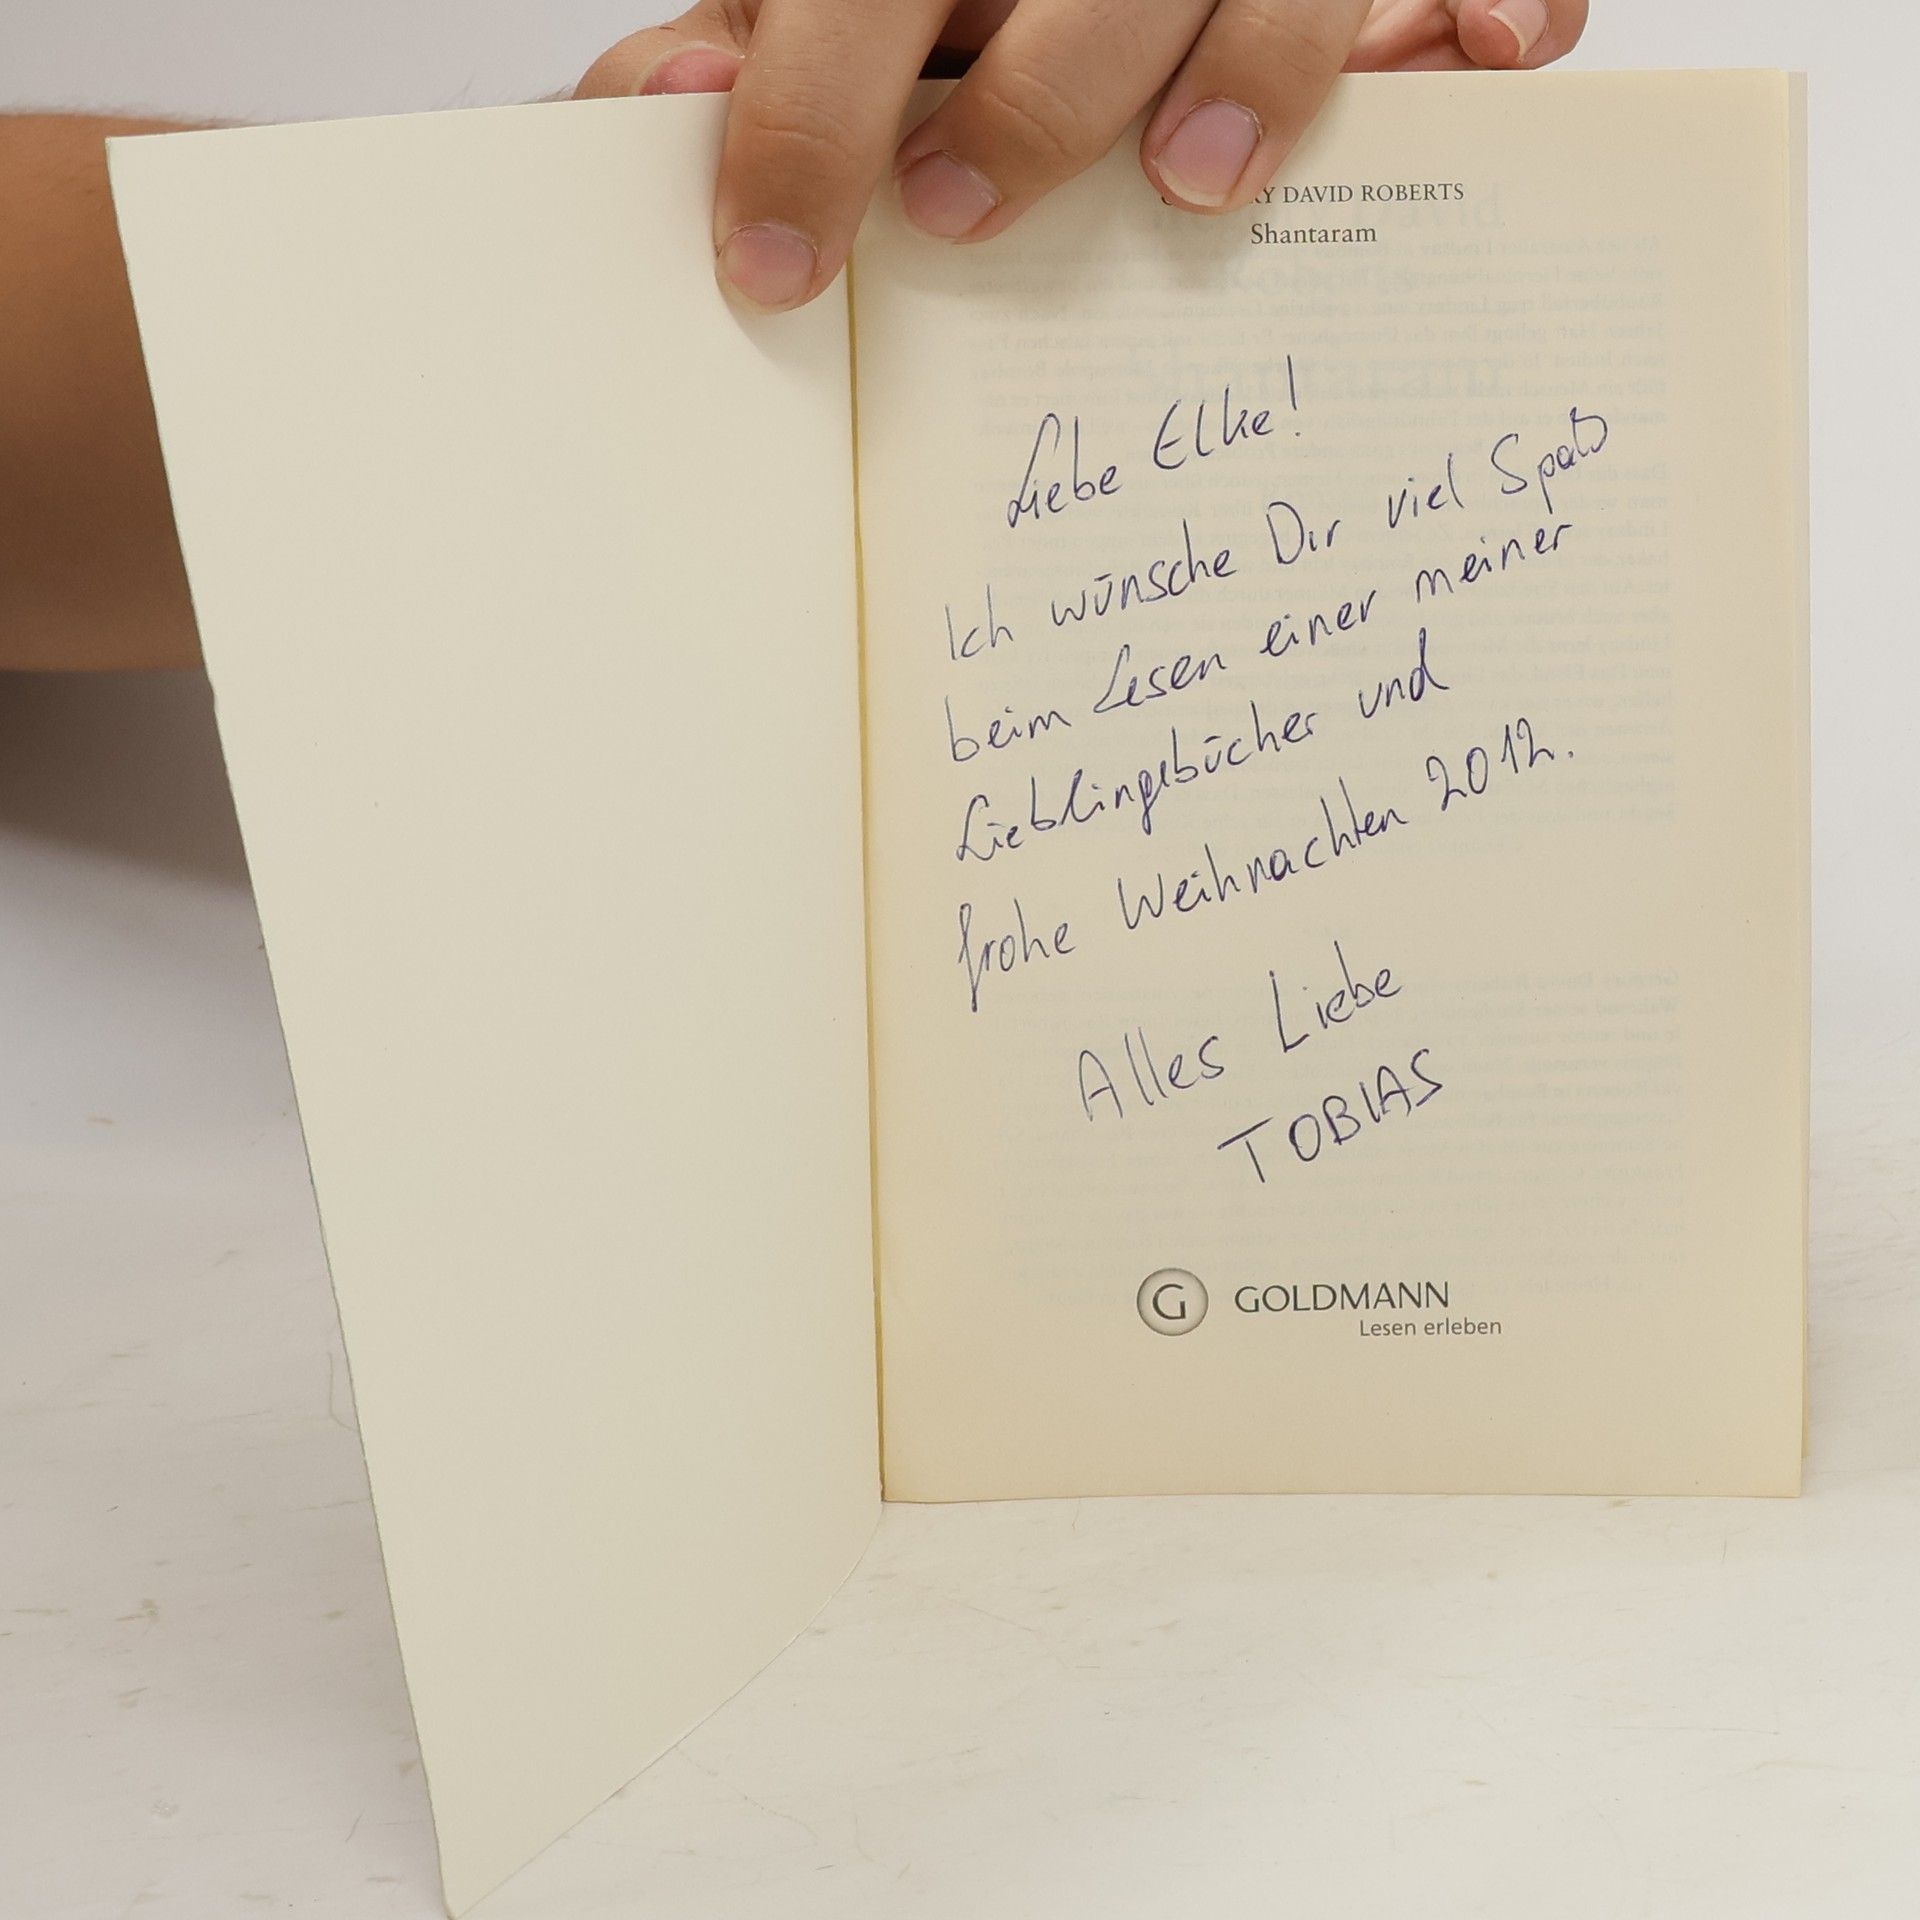 RY DAVID ROBERTS
Shantaram
Liebe Elke!
Ich wünsche Dir viel Spaß
beim Lesen einer meiner
Lieblingsbücher und
frohe Weihnachten 2012.
Alles Liebe
TOBIAS
G GOLDMANN
Lesen erleben